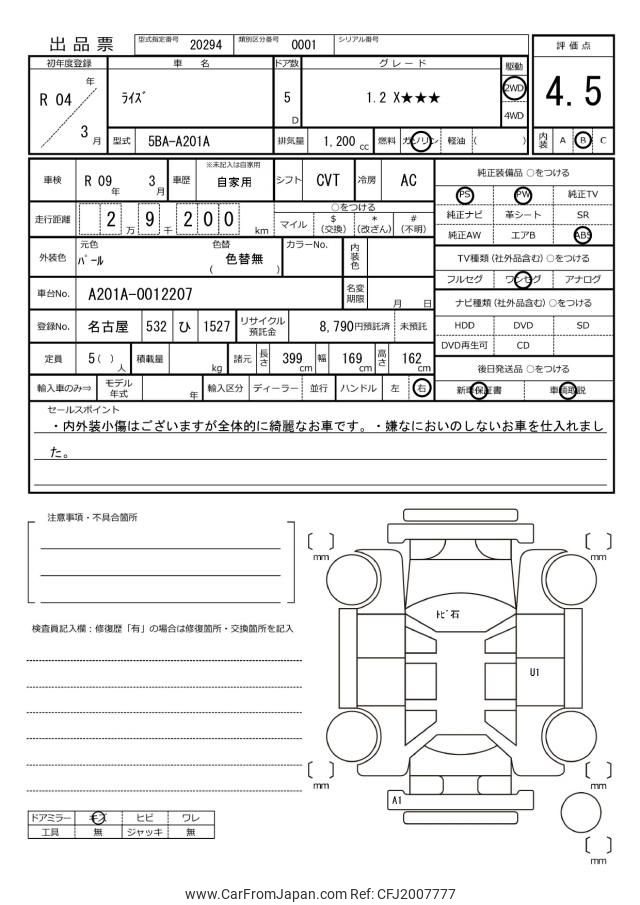 出品票 型式指定番号 20294 類別区分番号 0001 シリアル番号
評価点
4.5
内装 A B C
初年度登録 車名 ドア数 グレード 駆動
R 04 年 3 月 ﾗｲｽﾞ 5 D 1.2 X★★★ 2WD 4WD
型式 5BA-A201A 排気量 1,200 cc 燃料 ガソリン 軽油 ( )
車検 R 09 年 3 月 車歴 ※未記入は自家用 自家用 シフト CVT 冷房 AC
走行距離 2 万 9 千 2 0 0 km ○をつける
マイル $(交換) *(改ざん) #(不明)
外装色 元色 ﾊﾟｰﾙ 色替 ( 色替無 ) カラーNo. 内装色
車台No. A201A-0012207 名変期限 月 日
登録No. 名古屋 532 ひ 1527 リサイクル預託金 8,790円預託済 未預託
定員 5( ) 人 積載量 kg 諸元 長さ 399 cm 幅 169 cm 高さ 162 cm
輸入車のみ⇒ モデル年式 年 輸入区分 ディーラー 並行 ハンドル 左 右
純正装備品 ○をつける
PS PW 純正TV
純正ナビ 革シート SR
純正AW エアB ABS
TV種類 (社外品含む) ○をつける
フルセグ ワンセグ アナログ
ナビ種類 (社外品含む) ○をつける
HDD DVD SD
DVD再生可 CD
後日発送品 ○をつける
新車保証書 車輌取説
セールスポイント
・内外装小傷はございますが全体的に綺麗なお車です。・嫌なにおいのしないお車を仕入れまし
た。
注意事項・不具合箇所
検査員記入欄：修復歴「有」の場合は修復箇所・交換箇所を記入
mm mm
ﾄﾋﾞ石
U1
mm mm
A1
mm
ドアミラー キズ ヒビ ワレ
工具 無 ジャッキ 無
www.CarFromJapan.com Ref: CFJ2007777